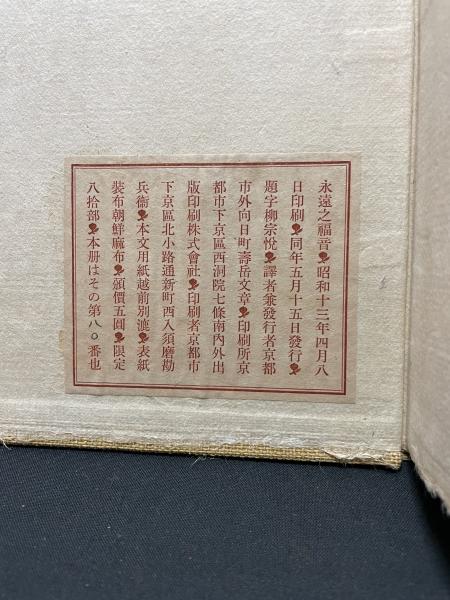 永遠之福音❧昭和十三年四月八
日印刷❧同年五月十五日發行❧
題字柳宗悅❧譯者兼發行者京都
市外向日町壽岳文章❧印刷所京
都市下京區西洞院七條南內外出
版印刷株式會社❧印刷者京都市
下京區北小路通新町西入須磨勘
兵衞❧本文用紙越前別漉❧表紙
裝布朝鮮麻布❧頒價五圓❧限定
八拾部❧本册はその第八〇番也